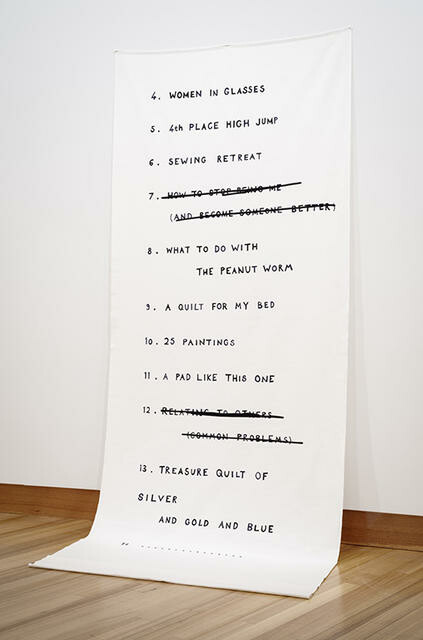 4. WOMEN IN GLASSES
5. 4th PLACE HIGH JUMP
6. SEWING RETREAT
7. HOW TO STOP BEING ME
(AND BECOME SOMEONE BETTER)
8. WHAT TO DO WITH
THE PEANUT WORM
9. A QUILT FOR MY BED
10. 25 PAINTINGS
11. A PAD LIKE THIS ONE
12. RELATING TO OTHERS
(COMMON PROBLEMS)
13. TREASURE QUILT OF
SILVER
AND GOLD AND BLUE